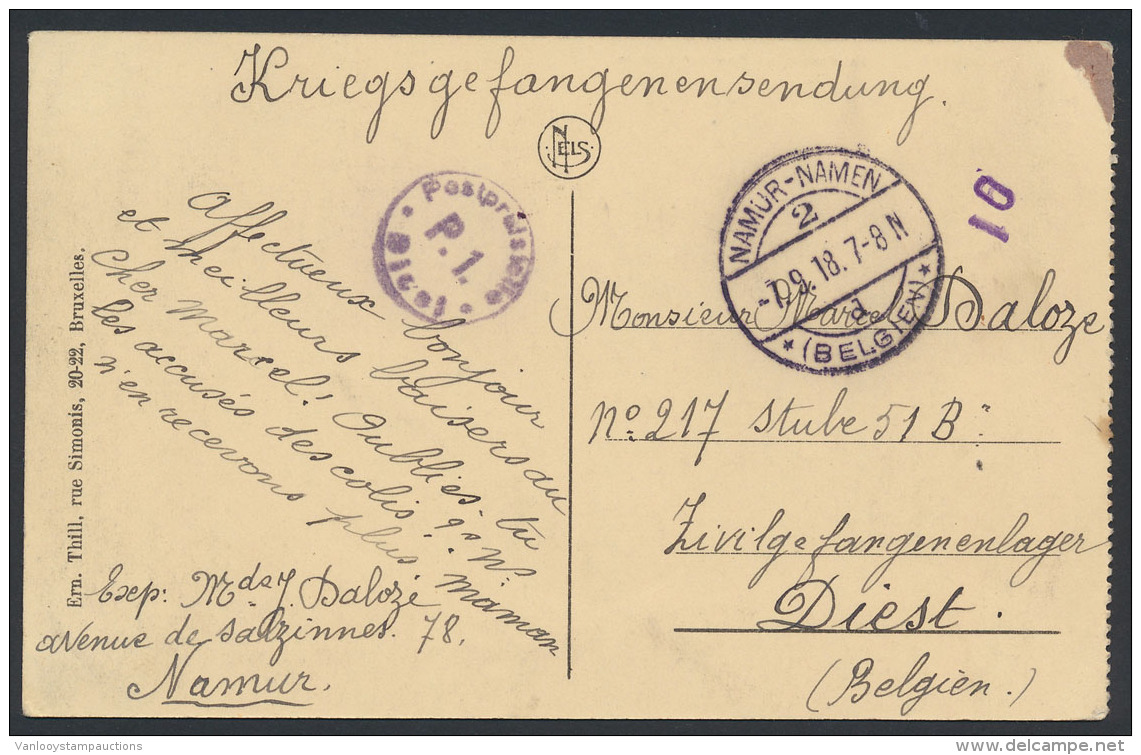 Kriegsgefangenensendung.
NELS
Postprüfstelle
P.1.
NAMUR-NAMEN
2
-7.9.18.7-8 N
d
* (BELGIEN) *
10
Affectueux bonjour
et meilleurs baisers au
cher Marcel! Oublies-tu
les accusés des colis, qs ns
n'en recevons plus. maman
Exp: Mde J. Daloze
avenue de Salzinnes. 78.
Namur.
Ern. Thill, rue Simonis, 20-22, Bruxelles.
Monsieur Marcel Daloze
No. 217 Stube 51 B"
Zivilgefangenenlager
Diest.
(Belgien.)
Vanlooystampauctions
www.delcampe.net